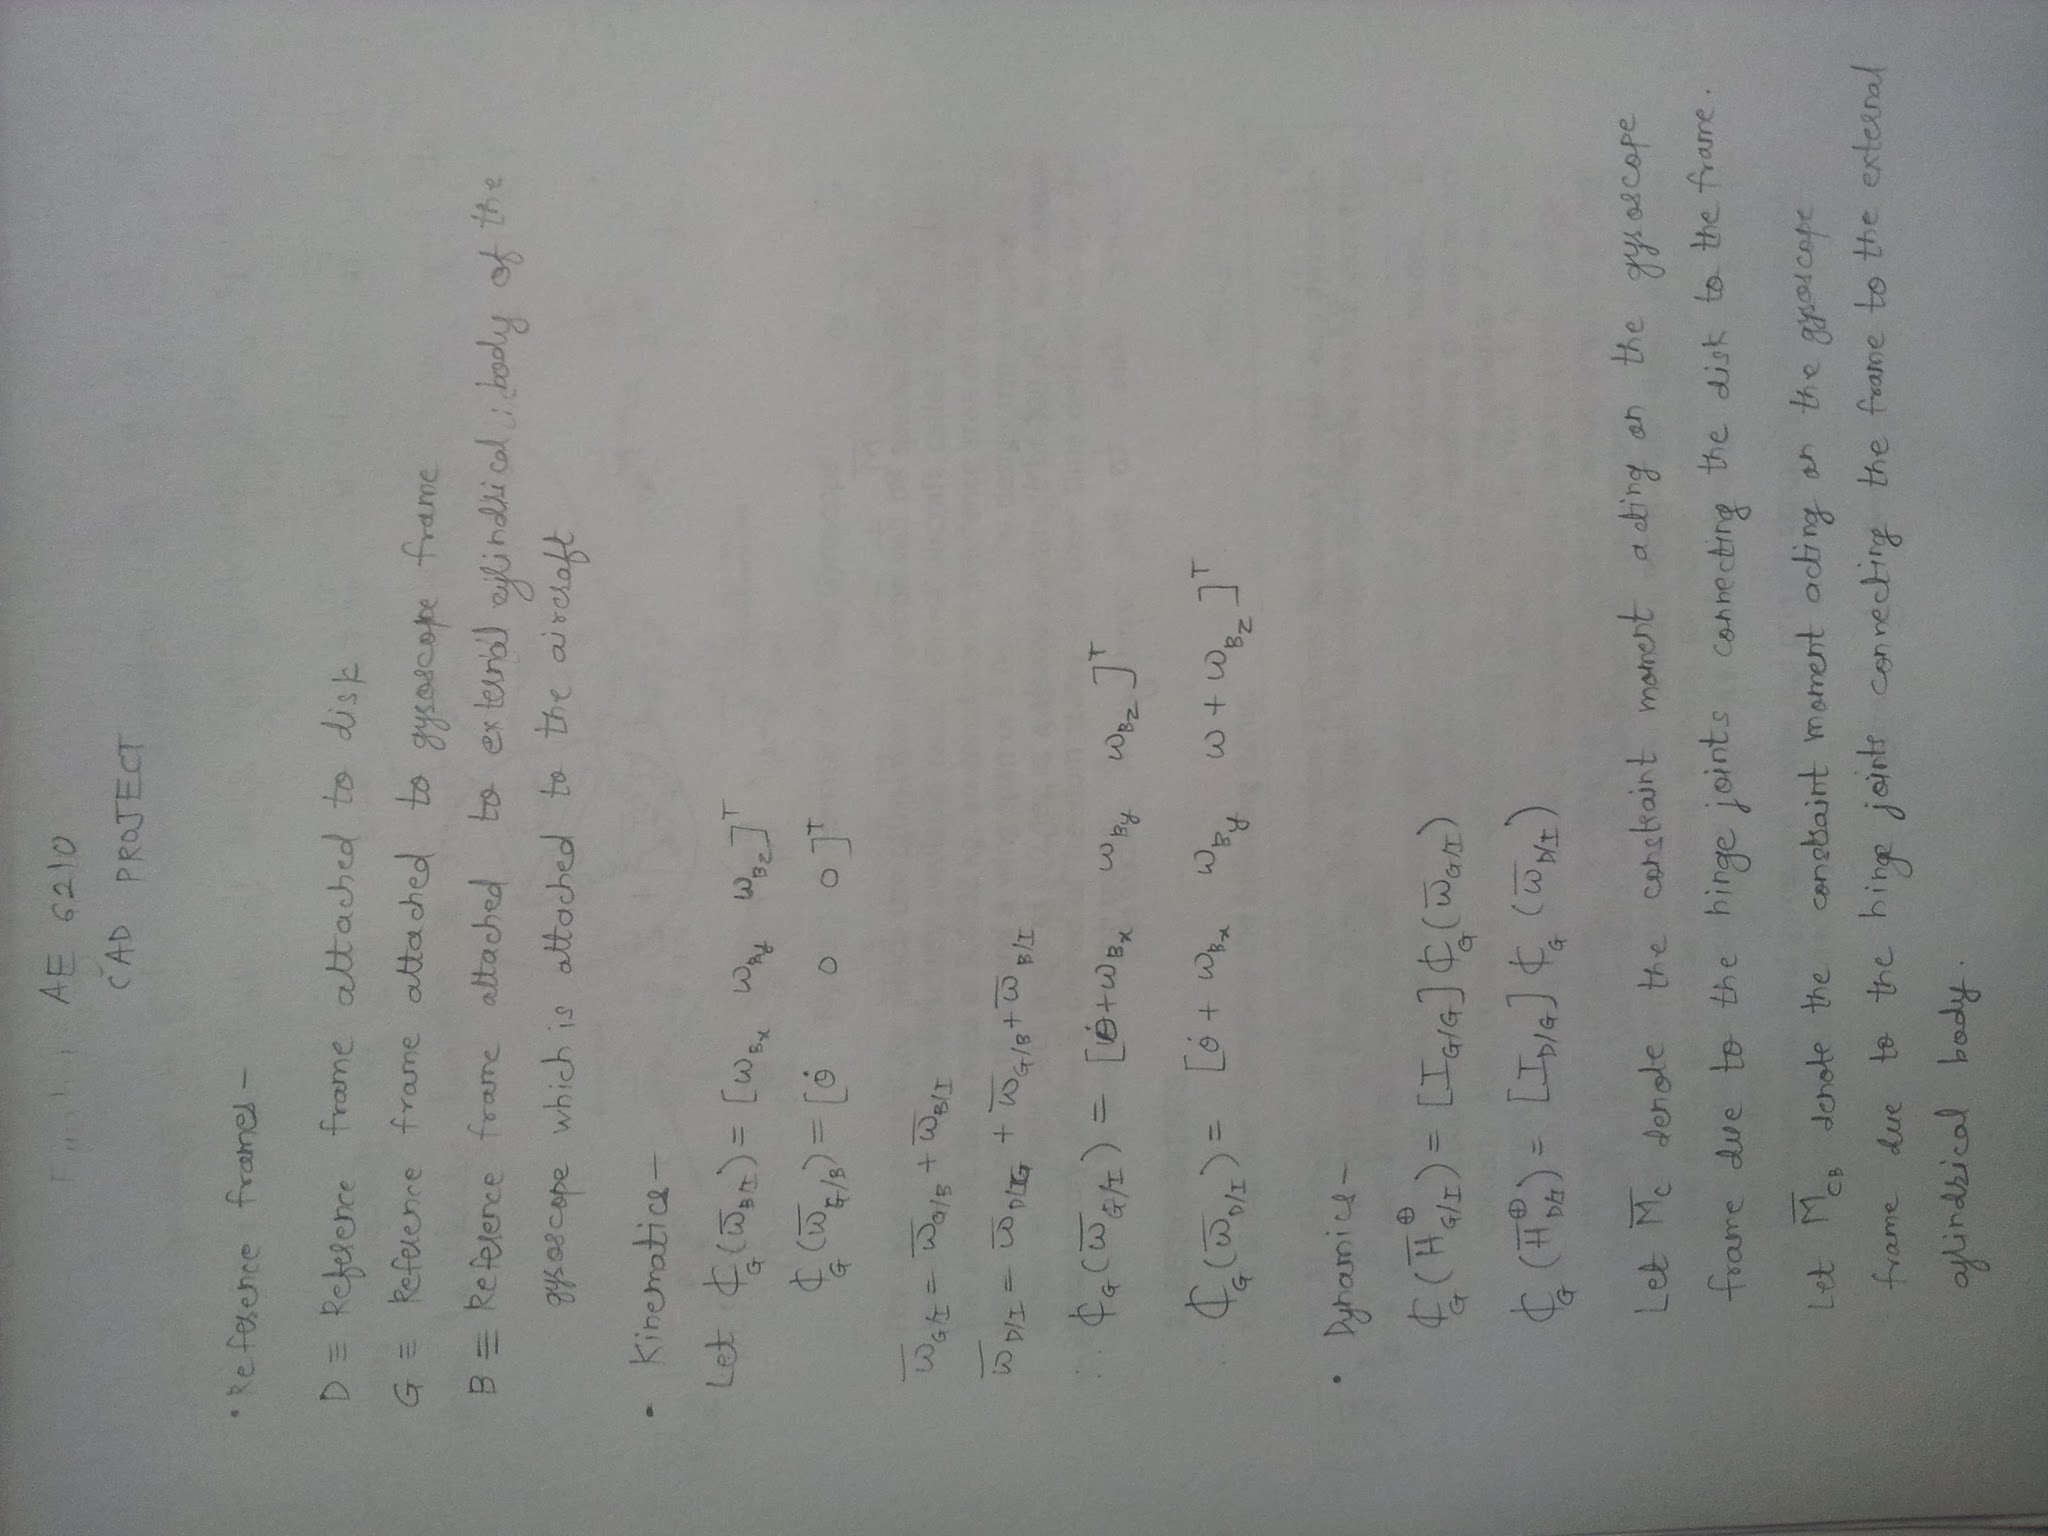 AE 6210
CAD PROJECT
• Reference frames –
D ≡ Reference frame attached to disk
G ≡ Reference frame attached to gyroscope frame
B ≡ Reference frame attached to external cylindrical body of the
gyroscope which is attached to the aircraft
• Kinematics –
Let ₵_G(ω̅_B/I) = [ω_Bx ω_By ω_Bz]^T
₵_G(ω̅_G/B) = [θ̇ 0 0]^T
ω̅_G/I = ω̅_G/B + ω̅_B/I
ω̅_D/I = ω̅_D/G + ω̅_G/B + ω̅_B/I
∴ ₵_G(ω̅_G/I) = [θ̇+ω_Bx ω_By ω_Bz]^T
₵_G(ω̅_D/I) = [θ̇ + ω_Bx ω_By ω + ω_Bz]^T
• Dynamics –
₵_G(H̅^⊕_G/I) = [I_G/G] ₵_G(ω̅_G/I)
₵_G(H̅^⊕_D/I) = [I_D/G] ₵_G(ω̅_D/I)
Let M̅_C denote the constraint moment acting on the gyroscope
frame due to the hinge joints connecting the disk to the frame.
Let M̅_CB denote the constraint moment acting on the gyroscope
frame due to the hinge joints connecting the frame to the external
cylindrical body.